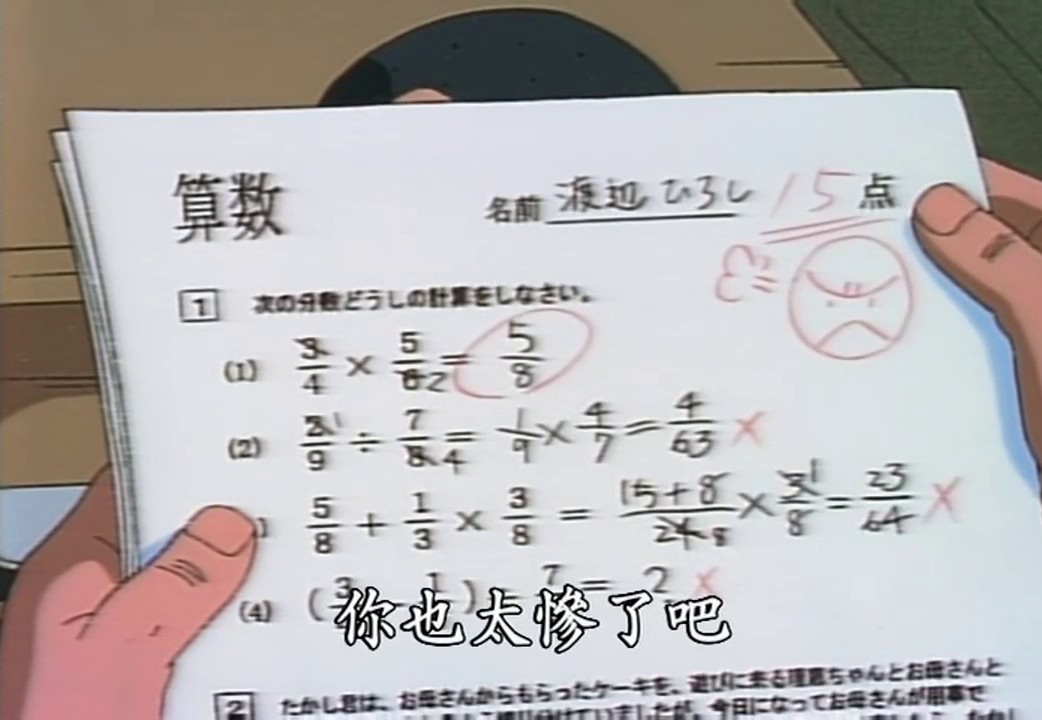 算数
名前 渡辺ひろし 15点
1 次の分数どうしの計算をしなさい。
(1) 3/4 × 5/6 2 = 5/8
(2) 2/9 1 ÷ 7/8 4 = 1/9 × 4/7 = 4/63 ×
) 5/8 + 1/3 × 3/8 = 15+8/24 8 × 3/8 1 = 23/64 ×
(4) ( ) 7 = 2 ×
你也太惨了吧
2 たかし君は、お母さんからもらったケーキを、遊びに来る理恵ちゃんとお母さんと
今日になってお母さんが用事で